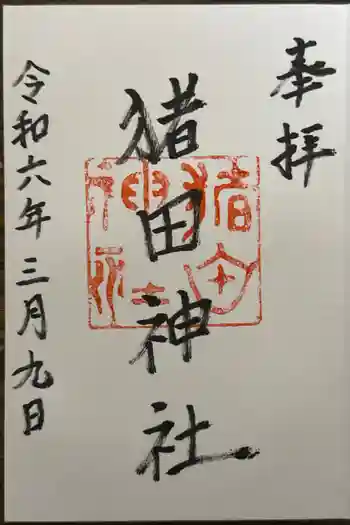 奉拝
猪田神社
令和六年三月九日
猪田
神社